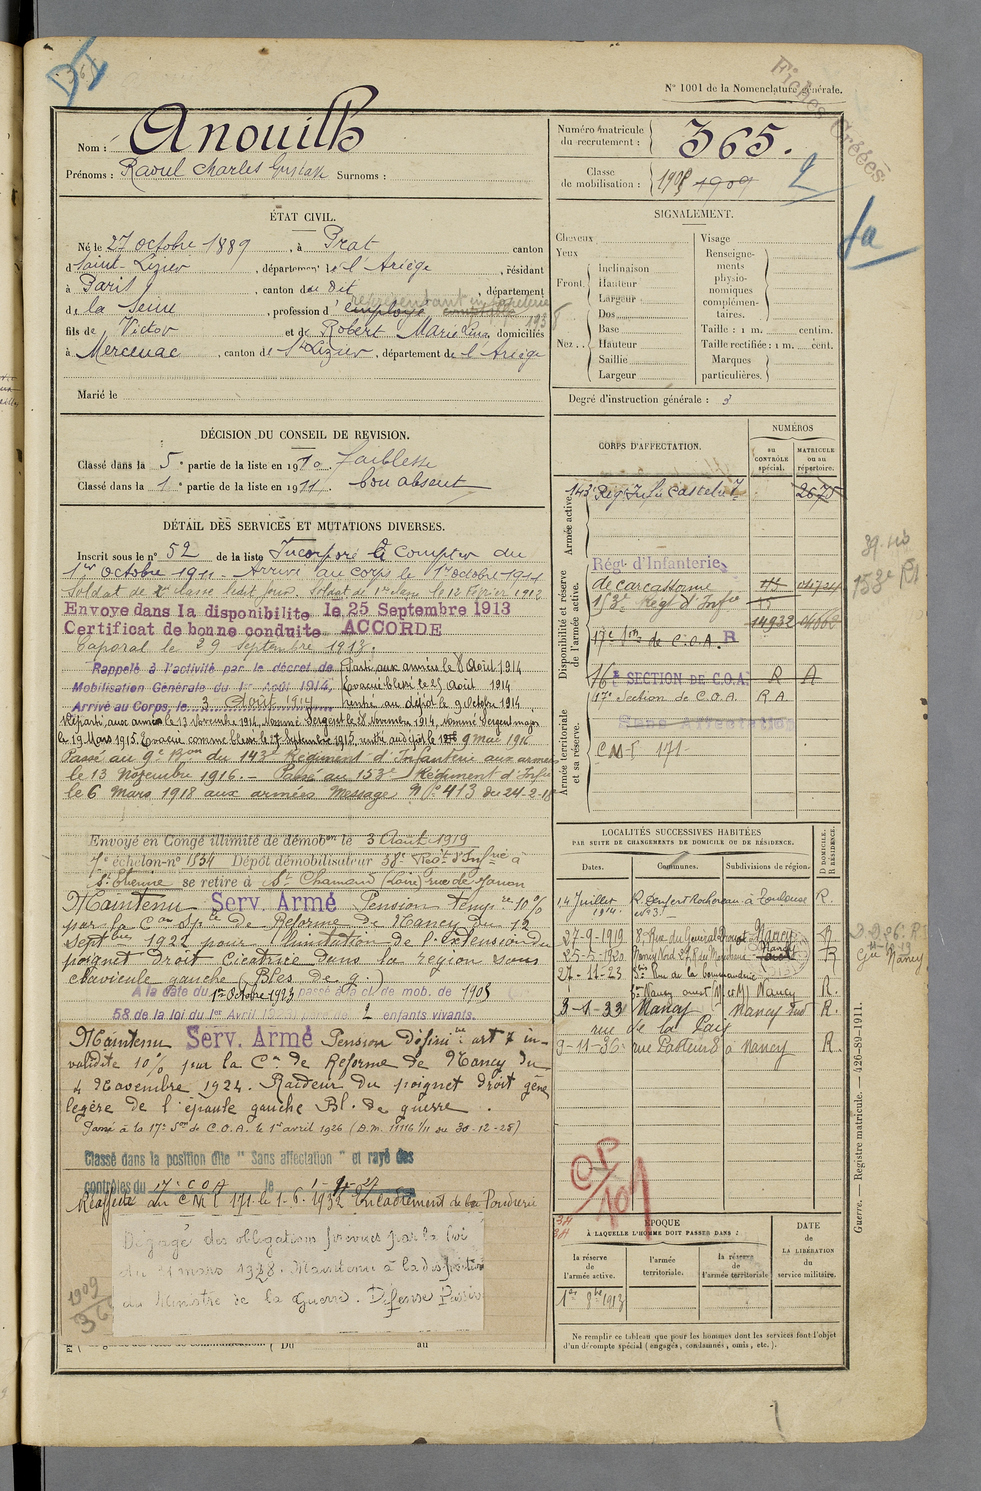 N° 1001 de la Nomenclature générale.
Fiches Créées
Nom : Anouilh
Prénoms : Raoul Charles Gustave Surnoms :
Numéro matricule du recrutement : 365.
Classe de mobilisation : 1908 1909
2
ÉTAT CIVIL.
Né le 27 octobre 1889, à Prat canton
d Saint-Lizier, département de l'Ariège, résidant
à Paris, canton de dit, département
de la Seine, profession d'employé
représentant en papeterie 1938
fils de Victor et de Robert Marie domiciliés
à Mercenac, canton de St Lizier, département de l'Ariège
Marié le
SIGNALEMENT.
Cheveux
Yeux
Front. Inclinaison
Hauteur
Largeur
Nez.. Dos
Base
Hauteur
Saillie
Largeur
Visage
Renseignements physionomiques complémentaires.
Taille : 1 m. centim.
Taille rectifiée : 1 m. cent.
Marques particulières.
Degré d'instruction générale : 3
DÉCISION DU CONSEIL DE REVISION.
Classé dans la 5e partie de la liste en 1910. faiblesse
Classé dans la 1e partie de la liste en 1911. bon absent
DÉTAIL DES SERVICES ET MUTATIONS DIVERSES.
Inscrit sous le n° 52 de la liste Incorporé à compter du
1er octobre 1911 - Arrivé au corps le 1er octobre 1911
Soldat de 2e classe ledit jour. Soldat de 1re classe le 12 Février 1912
Envoyé dans la disponibilité le 25 Septembre 1913
Certificat de bonne conduite ACCORDÉ
Caporal le 29 septembre 1912.
Rappelé à l'activité par le décret de Parti aux armées le 8 Août 1914
Mobilisation Générale du 1er Août 1914, Evacué blessé le 25 Août 1914
Arrivé au Corps, le 3 Août 1914 Rentré au dépôt le 9 octobre 1914
Réparti aux armées le 13 Novembre 1914, Nommé Sergent le 28 Novembre 1914, Nommé Sergent major
le 19 Mars 1915. Evacué comme blessé le 27 Septembre 1915, rentré au dépôt le 9 mai 1916
Passé au 9e Bon du 143e Régiment d'Infanterie aux armées
le 13 Novembre 1916. - Passé au 153e Régiment d'Infie
le 6 Mars 1918 aux armées Message N° 413 du 24-2-18
Envoyé en Congé illimité de démobon le 3 Août 1919
7e échelon - n° 1534 Dépôt démobilisateur 38e Regt d'Infrie à
St Etienne se retire à St Chamond (Loire) rue de Janon
Maintenu Serv. Armé Pension tempre 10%
par la Con Sple de Réforme de Nancy du 12
Septbre 1922 pour limitation de l'extension du
poignet droit cicatrice dans la région sous
claviculе gauche (Bles de g.)
A la date du 1er Octobre 1923 passé à la cl. de mob. de 1908
58 de la loi du 1er Avril 1923, père de 2 enfants vivants.
Maintenu Serv. Armé Pension définitve art 7 in-
validité 10% par la Con de Réforme de Nancy du
4 Novembre 1924. Raideur du poignet droit gêne
légère de l'épaule gauche Bl. de guerre.
Passé à la 17e Son de C.O.A. le 1er avril 1926 (D.M. 11116 1/11 du 30-12-25)
Classé dans la position dite " Sans affectation " et rayé des
contrôles du 17e COA le
Réaffecté au C M I 171 le 1-6-1932 Encadrement de la Poudrerie
Dégagé des obligations prévues par la loi
du 31 mars 1928. Maintenu à la disposition
du Ministre de la Guerre. Défense Passive
1909
365
Du au
CORPS D'AFFECTATION.
NUMÉROS
AU CONTRÔLE spécial.
MATRICULE ou au répertoire.
Armée active.
143e Reg. Infie Castelnry 2675
Disponibilité et réserve de l'armée active.
Régt d'Infanterie
de Carcassonne
153e Regt d'Infie
14932
17e Son de C.O.A. R
16e SECTION DE C.O.A. R A
17e Section de C.O.A. R A
Sans Affectation
Armée territoriale et sa réserve.
C M I 171
153e RI
LOCALITÉS SUCCESSIVES HABITÉES
PAR SUITE DE CHANGEMENTS DE DOMICILE OU DE RÉSIDENCE.
Dates. Communes. Subdivisions de région. D DOMICILE. R RÉSIDENCE.
14 Juillet 1914. R. Denfert Rochereau à Toulouse n° 31 R.
27-9-1919 8, Rue du Général Drouot Nancy R
25-5-1920 Nancy R
27-11-23 Rue de la Commanderie
Nancy ouest (M et M) Nancy R.
3-1-33 Nancy Nancy Sud R.
rue de la Paix
9-11-36 rue Pasteur 8 à Nancy R
OP/101
ÉPOQUE
À LAQUELLE L'HOMME DOIT PASSER DANS :
la réserve de l'armée active.
l'armée territoriale.
la réserve de l'armée territoriale
DATE de LA LIBÉRATION du service militaire.
1er 8bre 1913
Ne remplir ce tableau que pour les hommes dont les services font l'objet
d'un décompte spécial (engagés, condamnés, omis, etc.).
Guerre. — Registre matricule. — 426-89-1911.